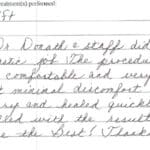 treatment(s) performed:
Dr. Donath & staff did
job. The procedure
comfortable and very
minimal discomfort
and healed quickly
with the results
the Best! Thanks